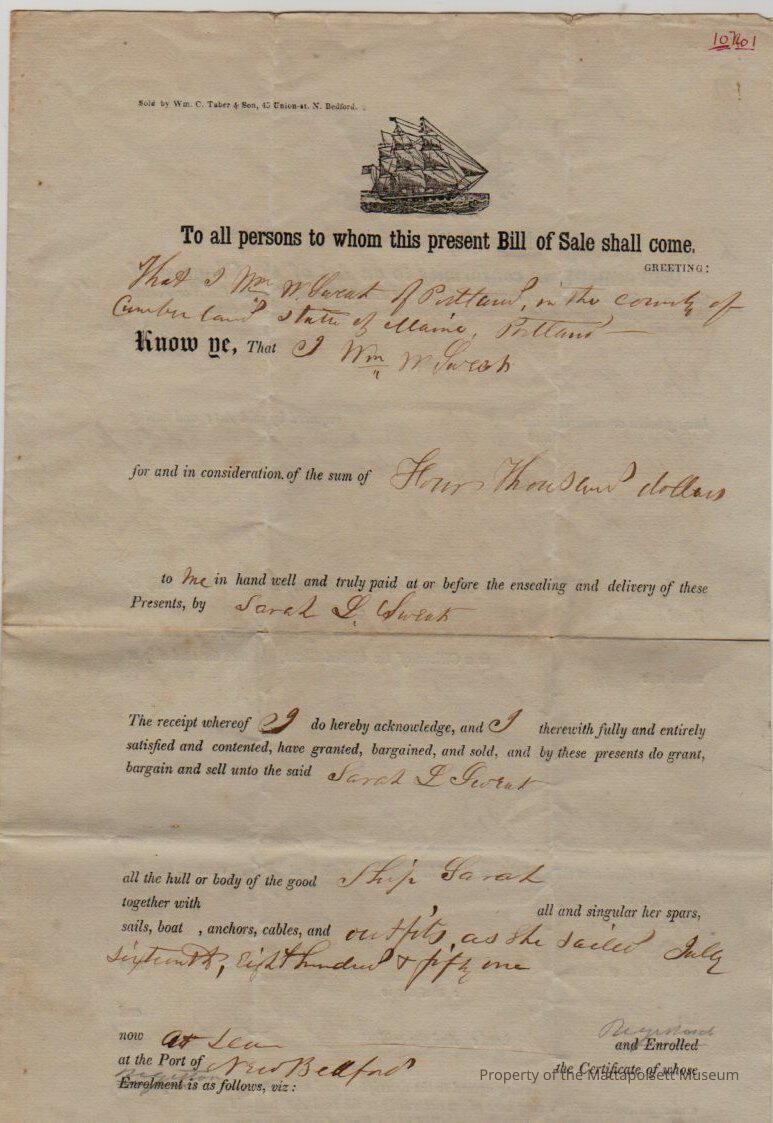 Sold by Wm. C. Taber & Son, 45 Union-st. N. Bedford.
To all persons to whom this present Bill of Sale shall come.
GREETING:
That I Wm W. Sweat of Portland, in the county of
Cumberland state of Maine, Portland
Know ye, That I Wm W Sweat
for and in consideration of the sum of Four Thousand dollars
to me in hand well and truly paid at or before the ensealing and delivery of these
Presents, by Sarah L. Sweat
The receipt whereof I do hereby acknowledge, and I therewith fully and entirely
satisfied and contented, have granted, bargained, and sold, and by these presents do grant,
bargain and sell unto the said Sarah L Sweat
all the hull or body of the good Ship Sarah
together with all and singular her spars,
sails, boat , anchors, cables, and outfits, as she sailed July
sixteenth, Eight hundred & fifty one
Registered
now at sea and Enrolled
at the Port of New Bedford the Certificate of whose
Enrolment is as follows, viz:
Property of the Mattapoisett Museum